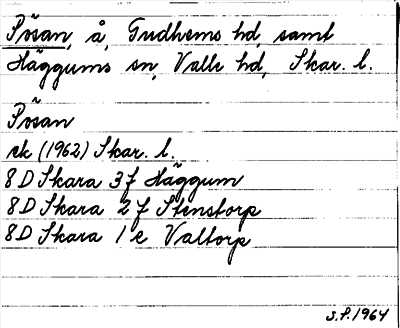 Pösan, å, Gudhems hd, samt
Häggums sn, Valle hd, Skar. l.
Pösan
ek (1962) Skar. l.
8D Skara 3f Häggum
8D Skara 2f Stenstorp
8D Skara 1e Valtorp
S.F. 1964